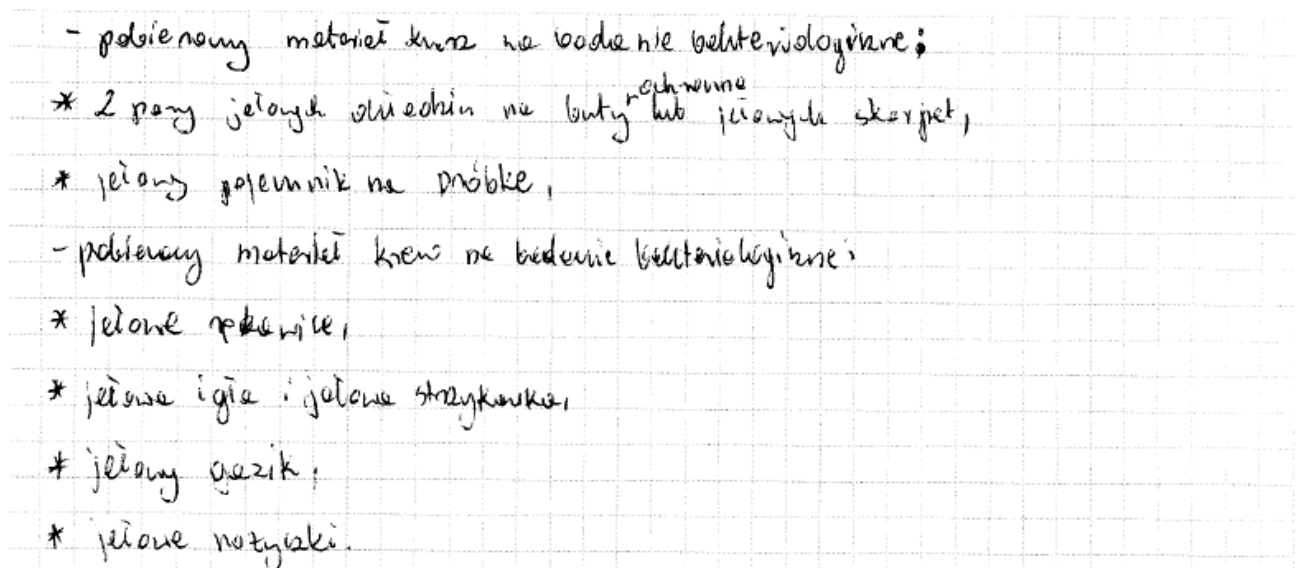 - pobierany materiał kurz na badanie bakteriologiczne:
* 2 pary jałowych okładzin na buty ochronne lub jałowych skarpet,
* jałowy pojemnik na próbkę,
- pobierany materiał krew na badanie bakteriologiczne:
* jałowe rękawice,
* jałowa igła i jałowa strzykawka,
* jałowy gazik,
* jałowe nożyczki.